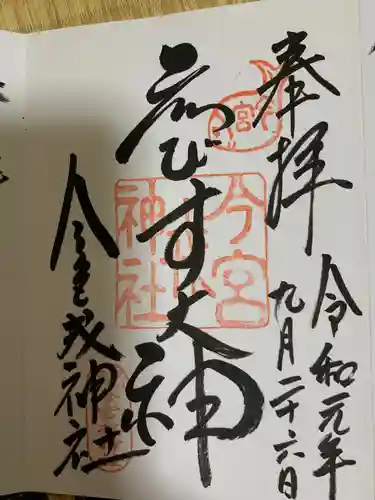 奉拝
令和元年
九月二十六日
ゑびす大神
今宮戎神社
今宮
神社
宮